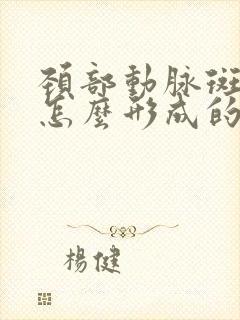 頚部動脉斑
怎麼形成的
楊健